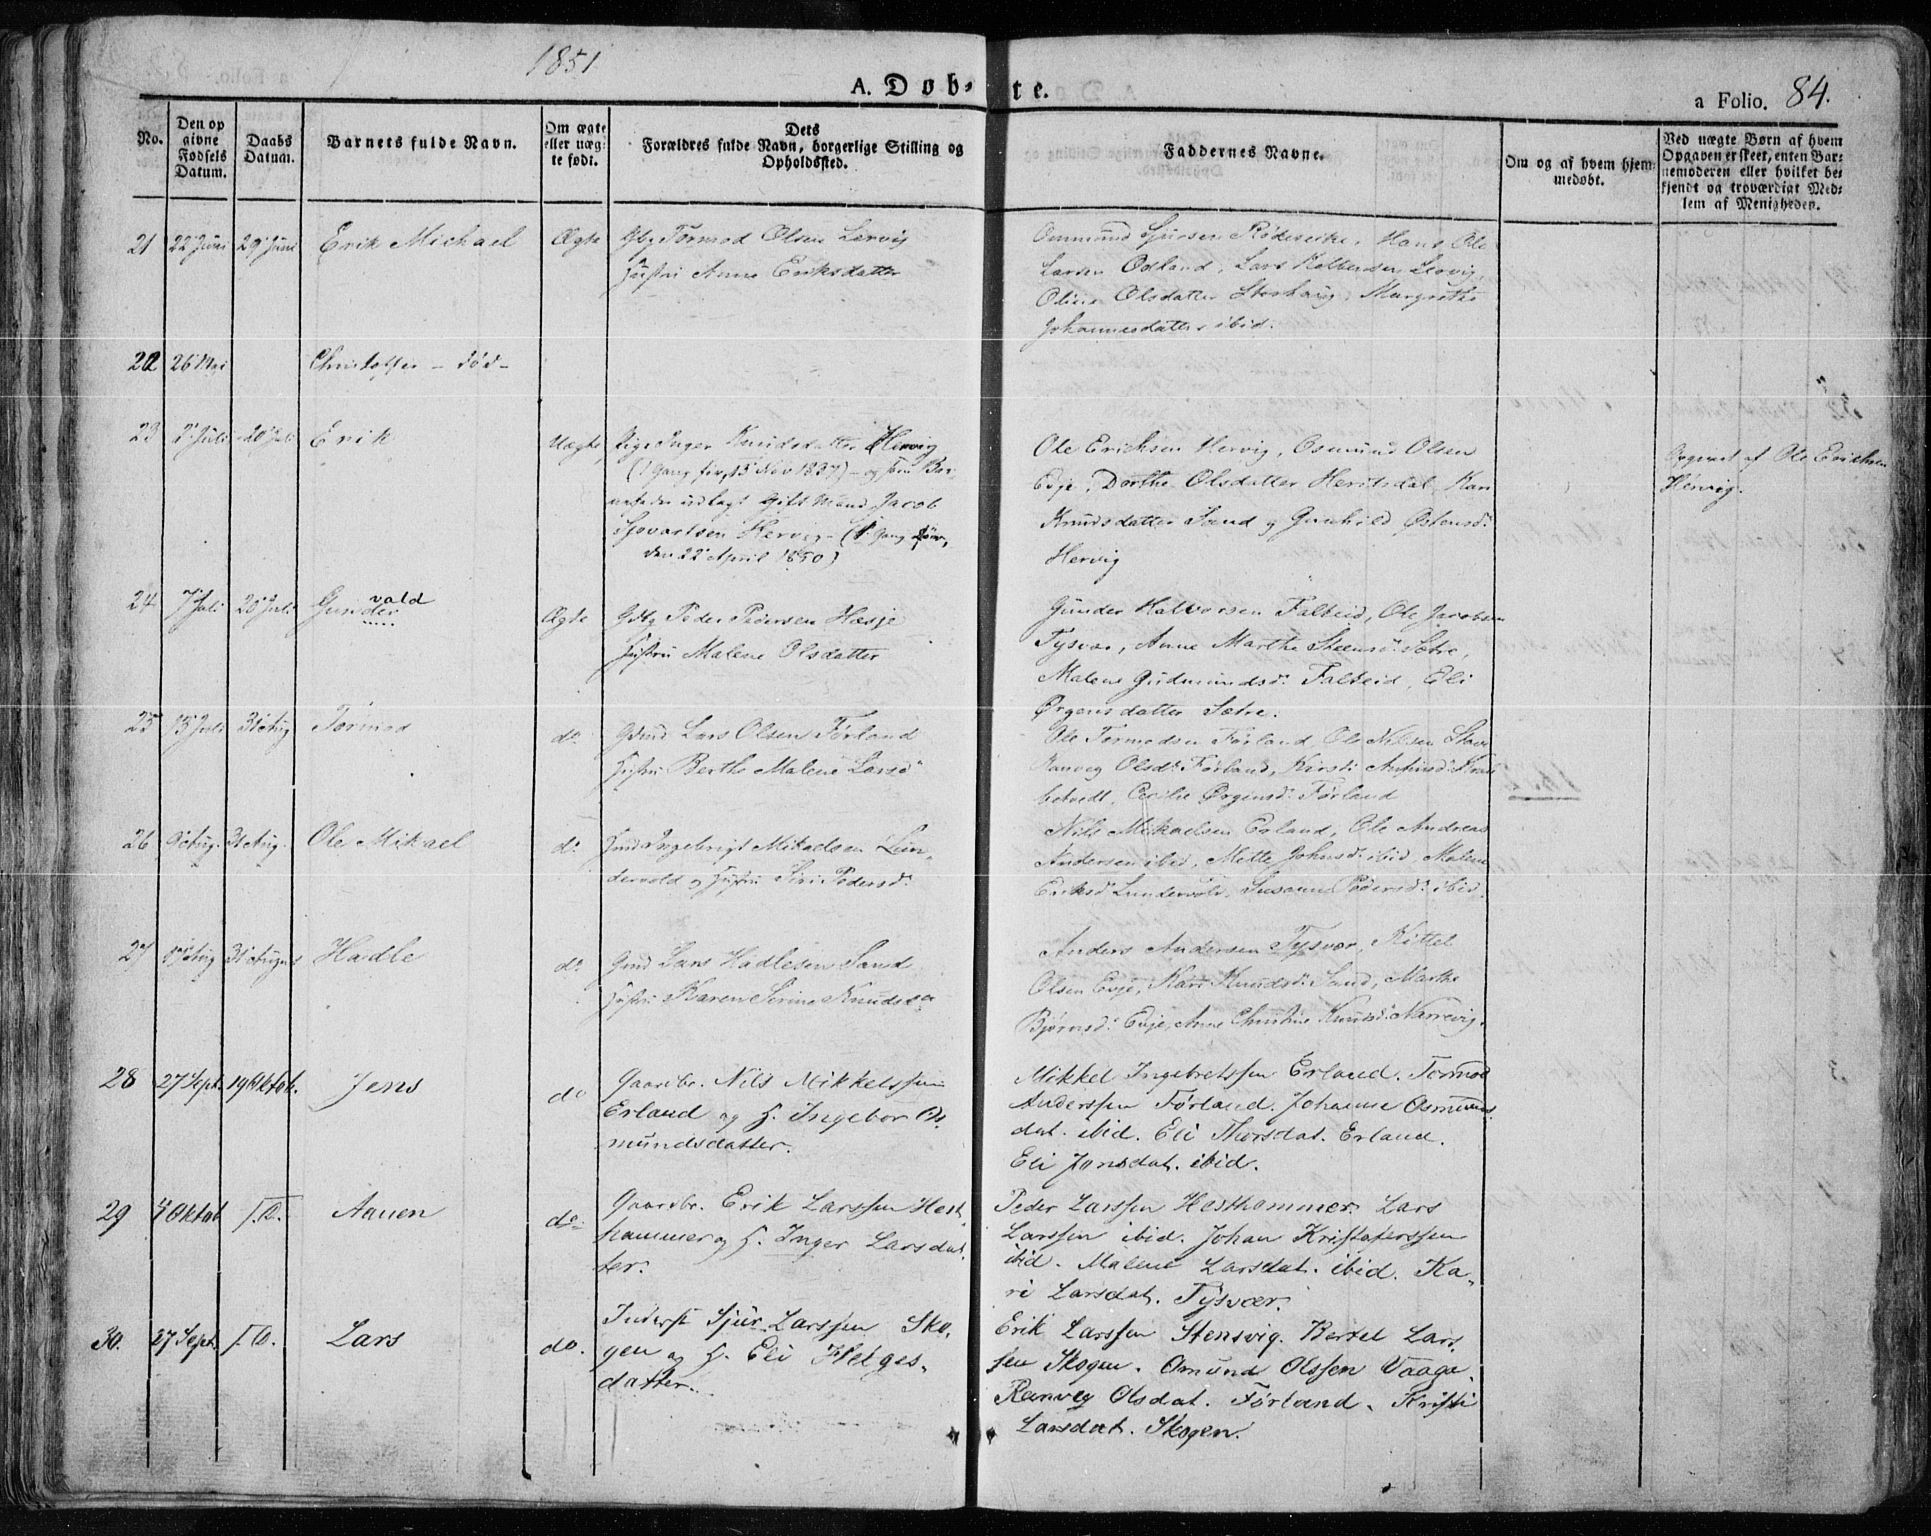 1851
A. Døbte.
a Folio. 84.
No.
Den opgivne Fødsels Datum.
Daabs Datum.
Barnets fulde Navn.
Om ægte eller uægte født.
Dets Forældres fulde Navn, borgerlige Stilling og Opholdssted.
Faddernes Navne.
Om og af hvem hjemmedøbt.
Ved uægte Børn af hvem Opgaven er skeet, enten Barnemoderen eller hvilket bekjendt og troværdigt Medlem af Menigheden.
21 22 Juni 29 Juni Erik Michael Ægte Tormod Olsen Lervig
Hustru Anne Eriksdatter
Ommund Sjursen Hans Ole
Larsen Odland, Lars Lervig,
Olsdatter Storhaug, Margrethe
Johannesdatter ibid.
22 26 Mai Christoffer - død -
23 Juli 20 Juli Erik Uægte Pige Inger Knudsdatter Hervig
(1 Gang 15 Nov 1837) - og som Bar-
nefader udlagt Gift Mand Jacob
Sjovartsen Hervig - (1 Gang
den 22 April 1850)
Ole Ericksen Hervig, Osmund Olsen
Evje, Dorthe Olsdatter Kari
Knudsdatter Sand og Gunhild
Hervig
Opgivet af Ole Ericksen
Hervig.
24 7 Juli 20 Juli Gunder vald Ægte Peder Pedersen Hæsje
Hustru Malene Olsdatter
Gunder Halvorsen Falkeid, Ole Jacobsen
Tysvær, Anne Marthe Steensd. Sætre,
Malene Gudmundsd. Falkeid, Eli
Ørgensdatter Sætre.
25 13 Juli 31 Aug Tormod do Lars Olsen Førland
Hustru Berthe Malene Larsd
Ole Tormodsen Førland, Ole Nilsen
Ranveg Olsd. Førland, Kirsti
Cecilie Ørgensd. Førland
26 Aug. 31 Aug. Ole Mikael do Ingebrigt Mikaelsen Lun-
dervold og Hustru Siri Pedersd.
Nils Mikaelsen Erland, Ole Andreas
Andersen ibid, Mette Johnsd. ibid, Malene
Eriksd. Lundervold, Susanne Pedersd. ibid.
27 Aug 31 August Hadle do Lars Hadlesen Sand
Hustru Karen Serine Knudsd
Anders Andersen Tysvær, Kittel
Olsen Evje, Kari Knudsd. Sand, Marthe
Bjørnsd. Evje, Anne Christine Knudsd. Narrevig.
28 27 Sept. 19 Oktob. Jens do Gaardbr. Nils Mikkelssen
Erland og H. Ingebor Os-
mundsdatter.
Mikkel Ingebretssen Erland. Tormod
Anderssen Førland. Johanne Osmunds-
dat. ibid. Eli Thorsdat. Erland.
Eli Jonsdat. ibid.
29 4 Oktob. I.D. Aanen do Gaardbr. Erik Larssen Hest-
hammer og H. Inger Larsdat-
ter.
Peder Larssen Hesthammer. Lars
Larssen ibid. Johan Kristoferssen
ibid. Malene Larsdat. ibid. Ka-
ri Larsdat. Tysvær.
30. 27 Sept. I.D. Lars do. Inderst Sjur Larssen Sko-
gen og H. Eli Helges-
datter.
Erik Larssen Stensvig. Bertel Lars-
sen Skogen. Omund Olssen Vaage.
Ranveg Olsdat. Førland. Kristi
Larsdat. Skogen.